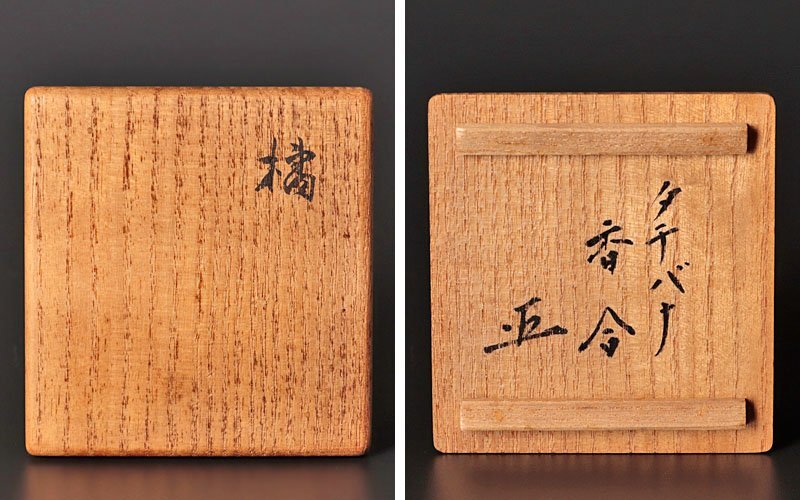 橘
タチバナ
香合